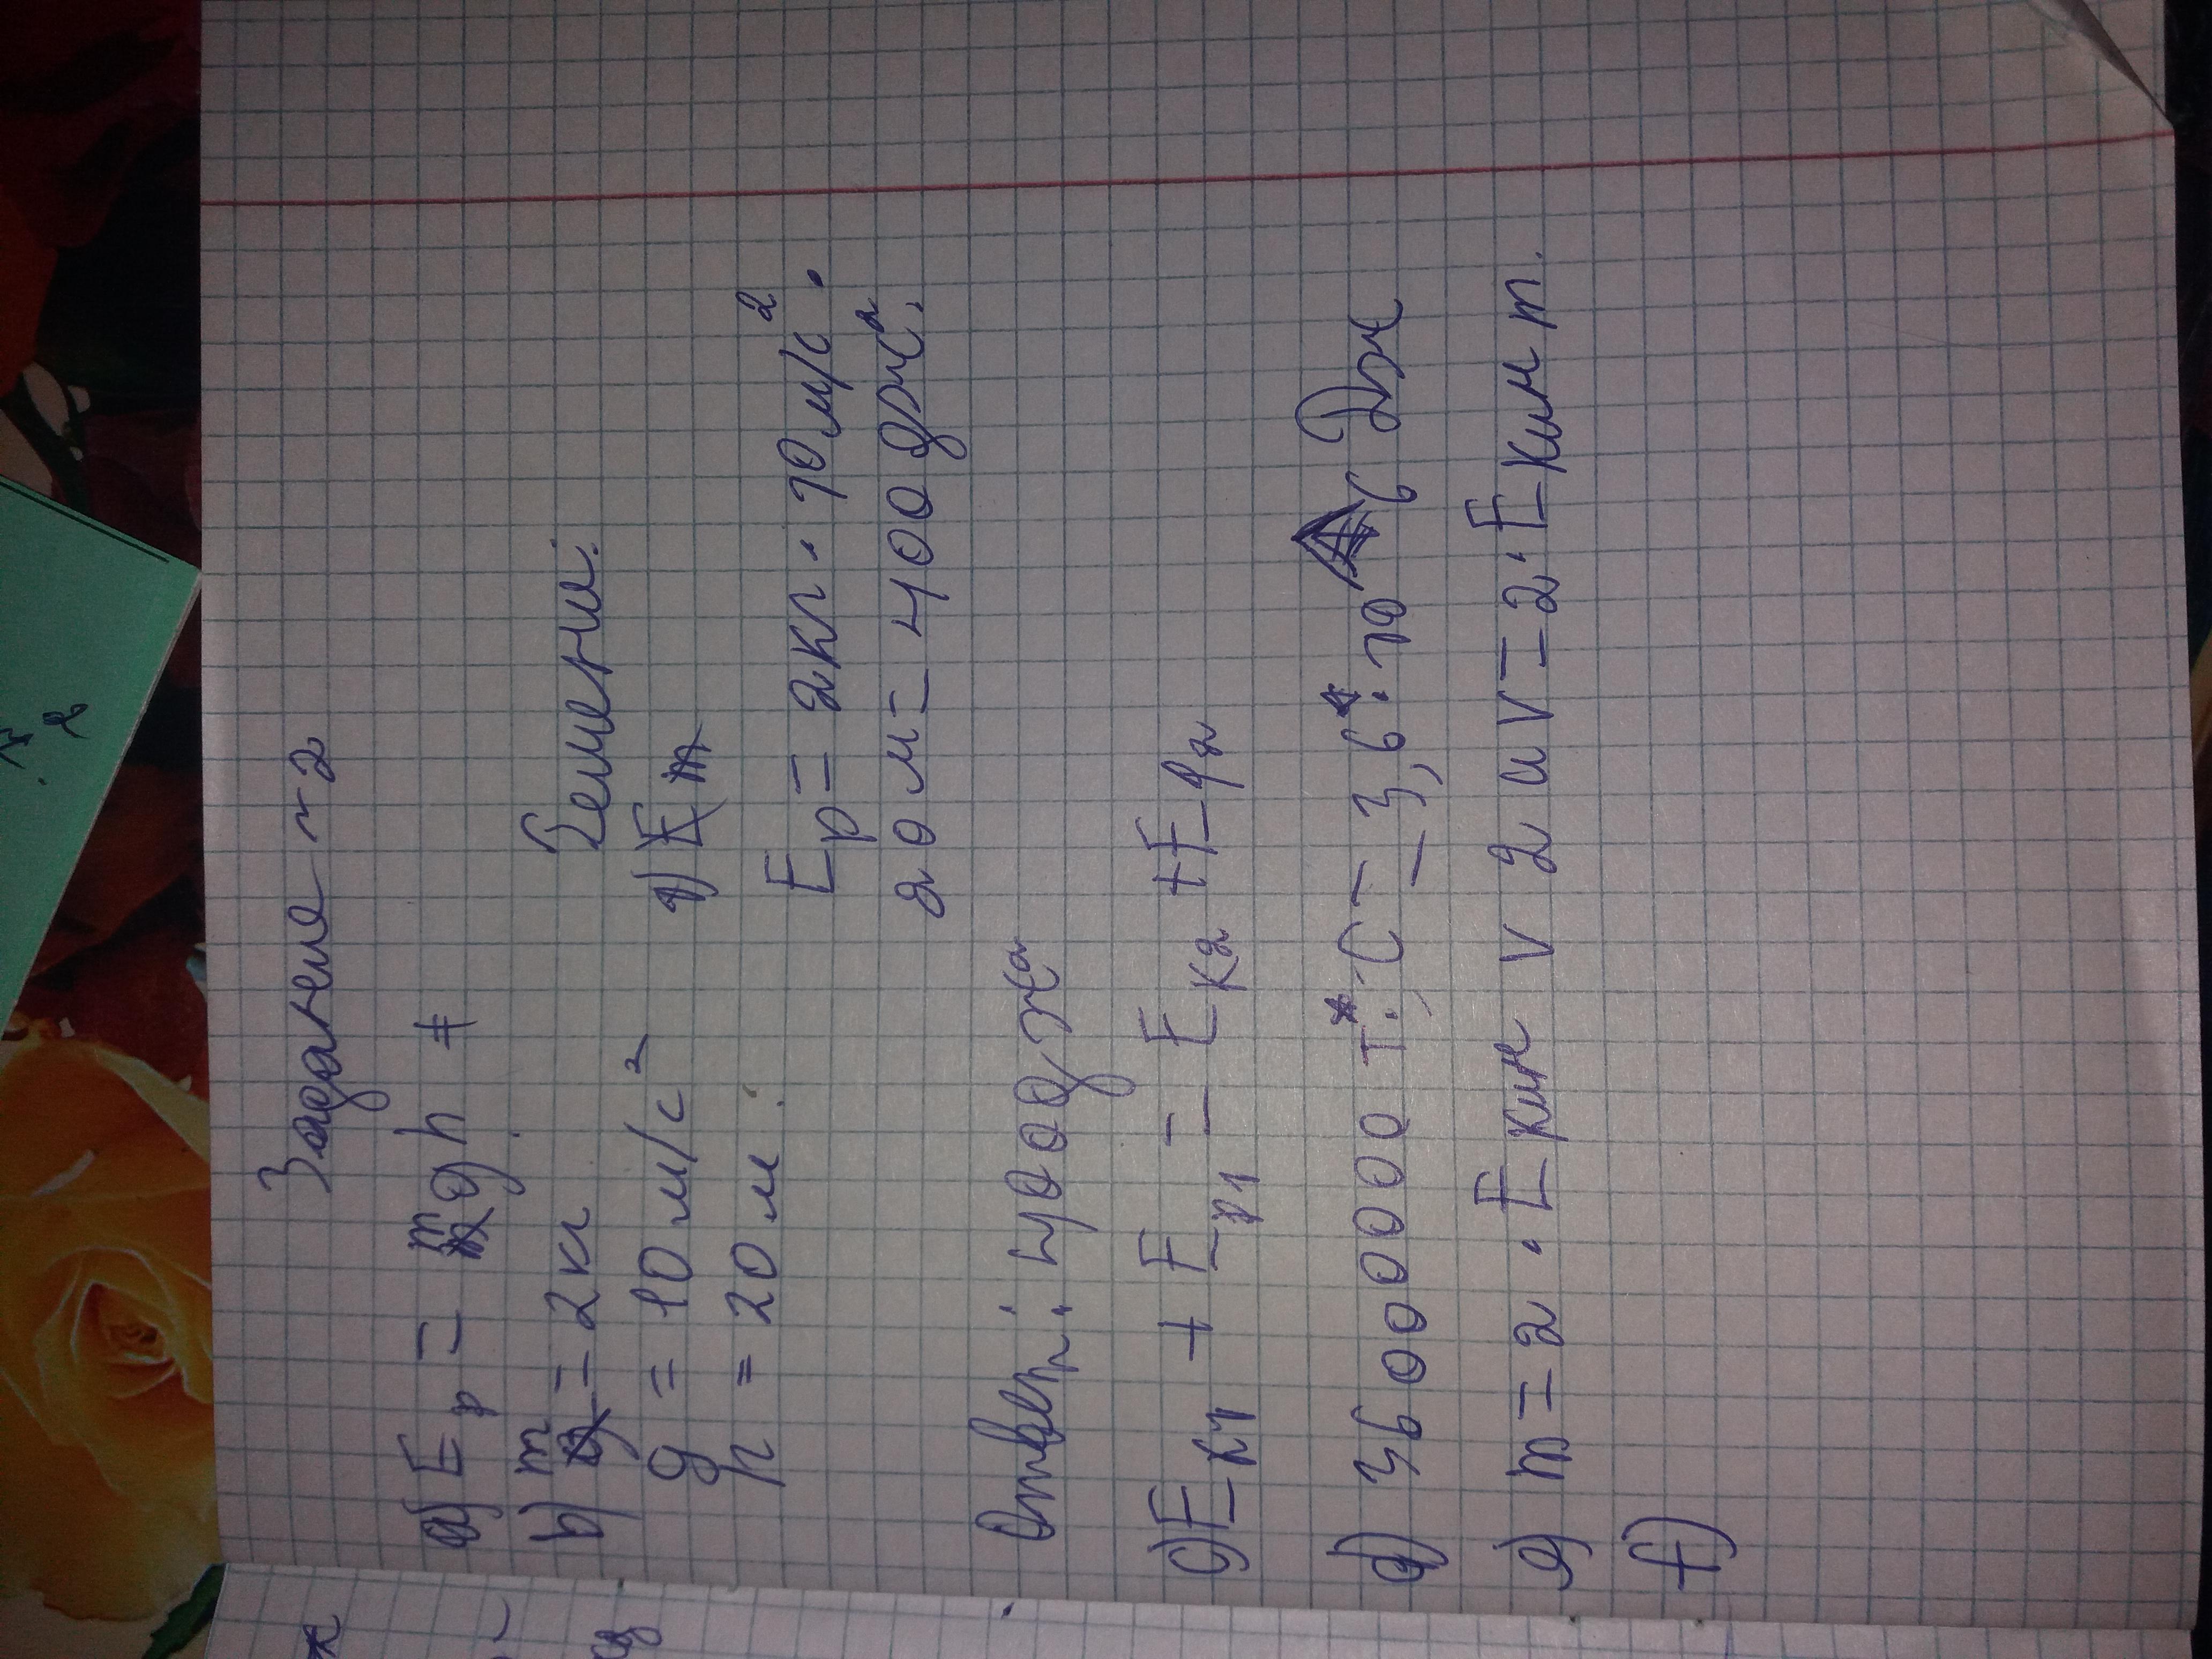 Задание ~ 2
a) Ep = mgh
b) m = 2кг
g = 10 м/с²
h = 20 м.
Решени:
Ep = 2кг · 10 м/с² ·
20 м = 400 дж
Ответ: 400 дж
c) Eк1 + Ep1 = Eк2 + Ep2
d) 3600000 т. с = 3,6 · 10 6 Дж
e) m = 2 · Eкин v 2 и v = 2 · Eкин m.
f)